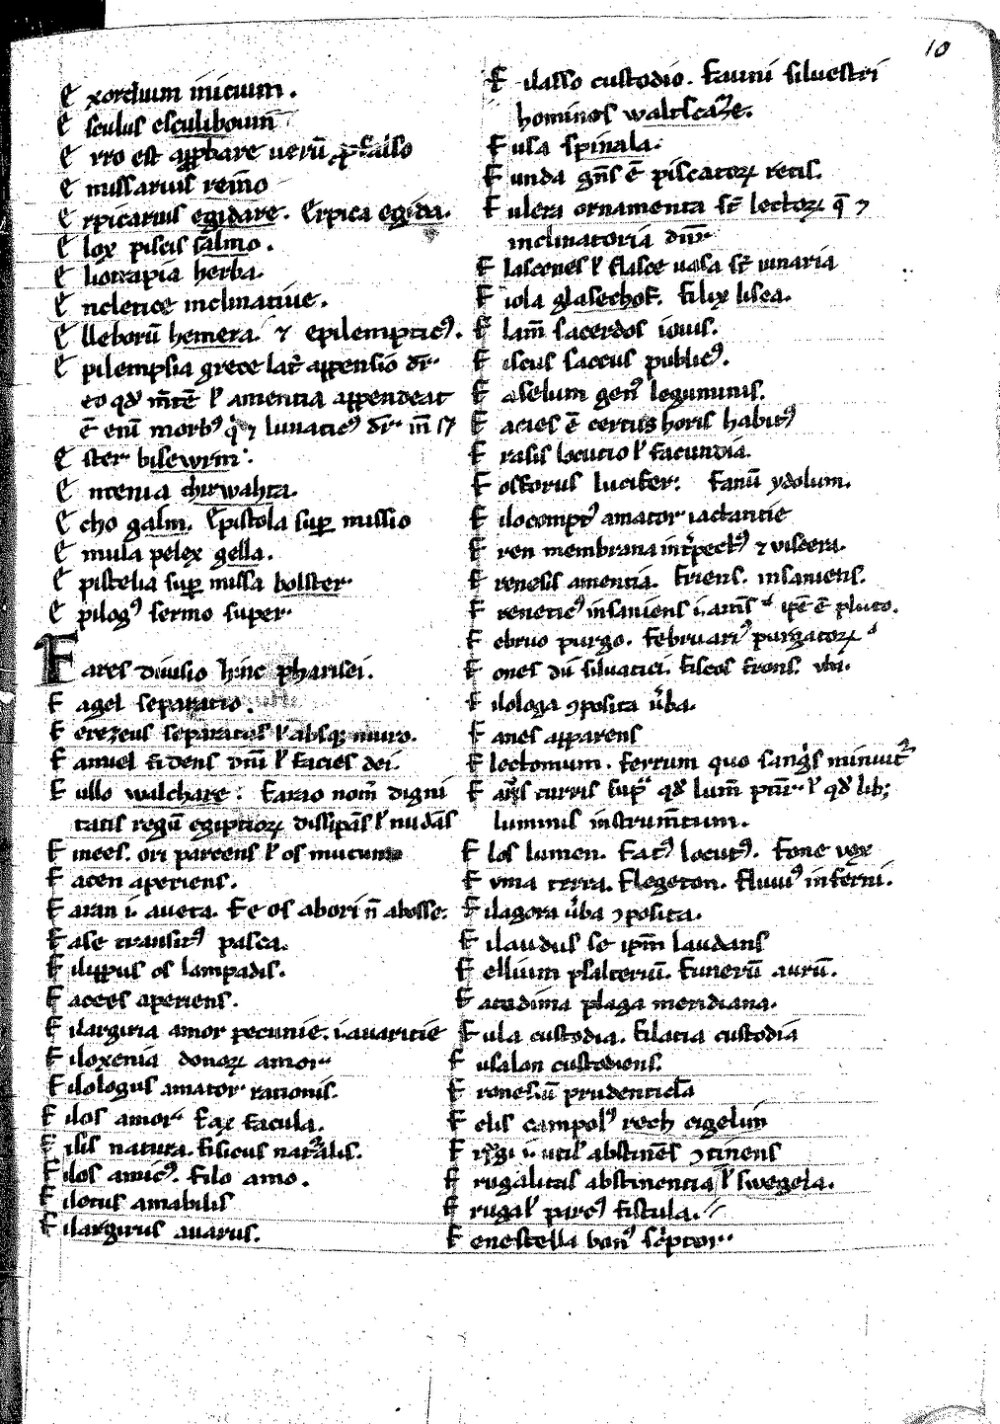 10
Exordium inicium.
Esculus esculiboum̄
Erro est appbare uerū p̱ falso
Emissarius reīno
Erpicarius egidare. Erpica egida.
Elox piscis salmo.
Eliotrapia herba.
Encletice inclinatiue.
Elleborū hemera. ⁊ epilempticꝰ.
Epilempsia grece lat̄ appensio dr̄.
eo qd̓ m̄tē ł amentia appendeat
ē enī morbꝰ q̓ ⁊ lunaticꝰ dr̄.
Ester bisewrm.
Entenia chirwahta.
Echo galm. Epistola suꝑ missio
Emula pelex gella.
Epistelia suꝑ missa bolster.
Epilogꝰ sermo super.
Fares diuisio hinc pharisei.
Fagel separatio.
Ferezeus separatus ł absqꝫ muro.
Fanuel fidens dn̄i ł facies dei.
Fullo walchare. Farao nom̄ digni
tatis regū egiptioꝝ dissipās ł nudās
Finees. ori parcens ł os mutum
Facen aperiens.
Faran i. aucta. Fe os abori n̄ abosse.
Fase transitꝰ pasca.
Filippus os lampadis.
Facces aperiens.
Filargiria amor pecunie. i. auaritie
Filoxenia donoꝝ amor.
Filologus amator rationis.
Filos amor. Fax facula.
Fisis natura. Fisicus nat̄alis.
Filos amicꝰ. Filo amo.
Filetus amabilis
Filargirus auarus.
Filasso custodio. Fauni siluestri
homines waltscaze.
Fusa spinala.
Funda gn̄s ē piscatoꝝ retis.
Fulera ornamenta st̄ lectoꝝ q̄ ⁊
inclinatoria dn̄r
Flascones ł flasce uasa st̄ uinaria
Fiola glasechof. Filix lisea.
Flam̄ sacerdos iouis.
Fiscus saccus publicꝰ.
Faselum genꝰ leguminis.
Facies ē certus horis habitꝰ
Frasis locutio ł facundia.
Fosforus lucifer. Fanū ydolum.
Filocomptꝰ amator iactantie
Fren membrana int̓pectꝰ ⁊ viscera.
Frenesis amentia. Friens. insaniens.
Freneticꝰ insaniens i. am̄s ipē ē pluto.
Februo purgo. Februariꝰ purgatoꝝ
Fones dii siluatici. Fiscos frons. vbi.
Filologa ꝯposita v̓ba.
Fanes apparens
Flectomum. Ferrum quo sangs minuit̓
Far̄s turris sup̄ qd̓ lum̄ ł qd̓ lib;
luminis instrum̄tum.
Flos lumen. Fatꝰ locutꝰ. Fone vox
Fvma terra. Flegeton. fluuiꝰ inferni.
Filagora v̓ba ꝯposita.
Filaudus se ip̄m laudans
Fellium psalteriū. Funerū aurū.
Facudima plaga meridiana.
Fula custodia. Filatia custodia
Fusalon custodiens.
Fronesiū prudenticl̄a
Felis campolꝰ rech eigelun
Frugi i. utił abstinēs ꝯtinens
Frugalitas abstinentia ł swegela.
Frugał parcꝰ fistula.
Fenestella bonꝰ sc̓ptor.